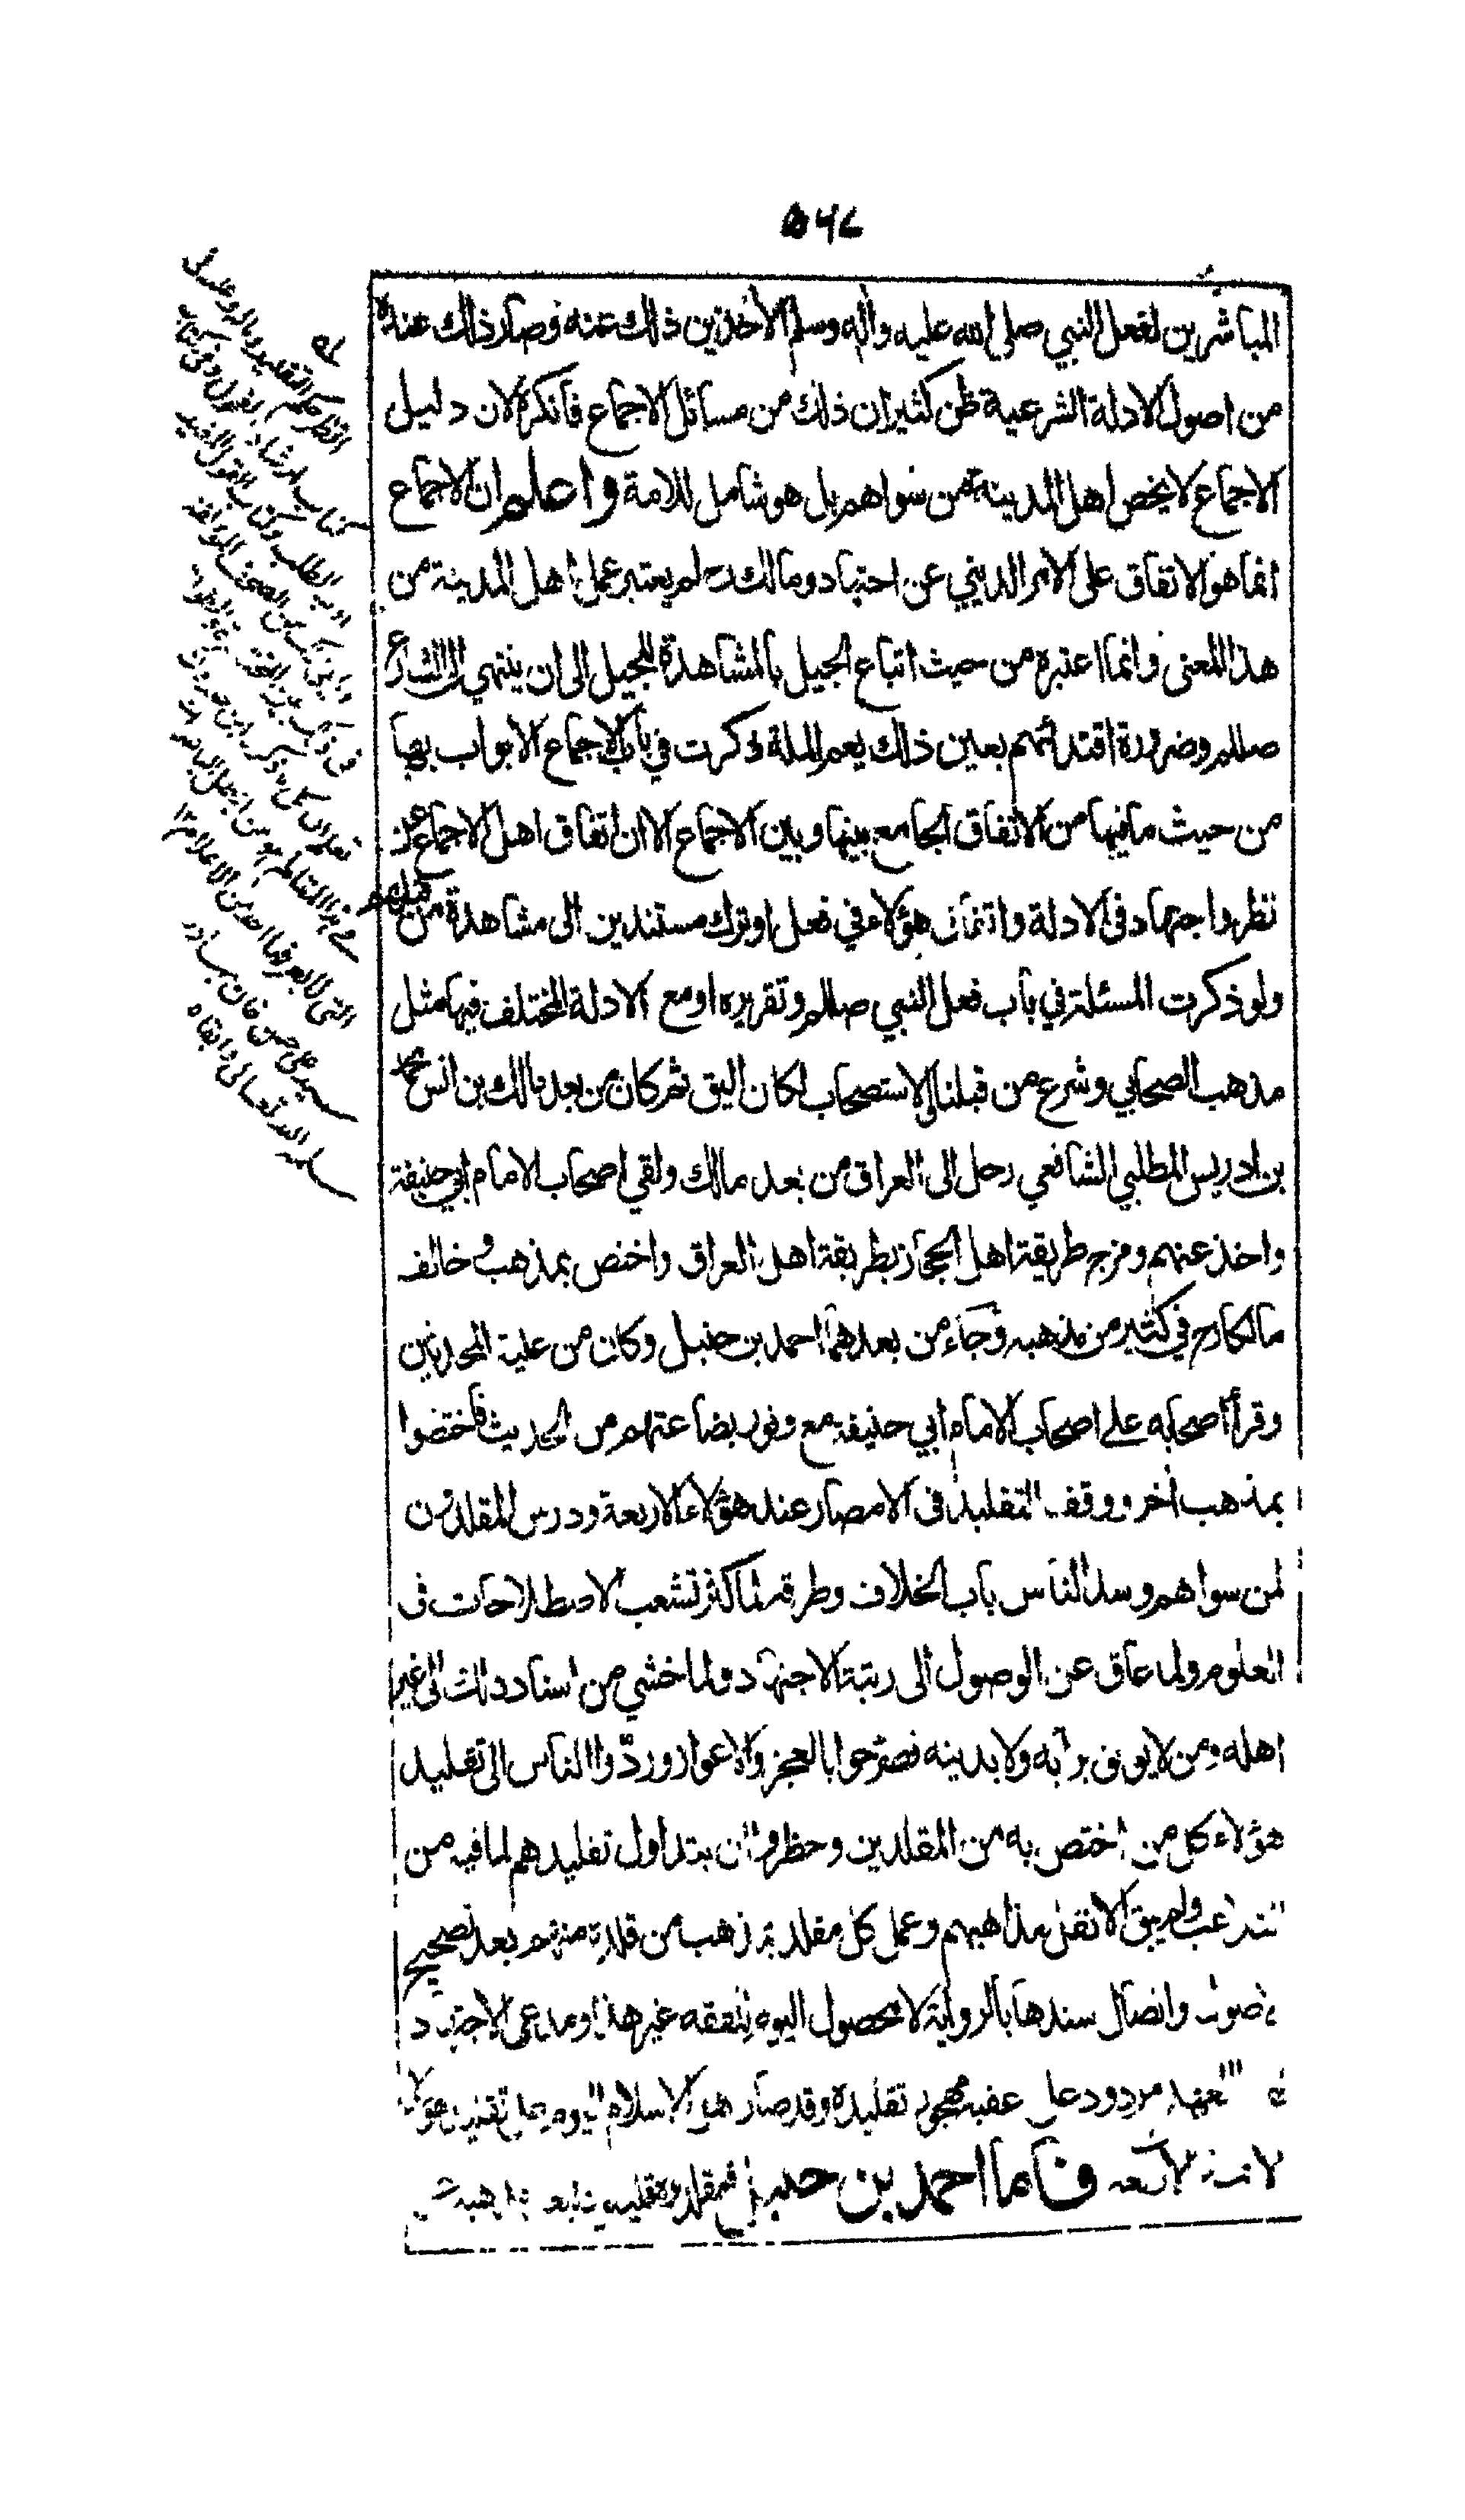 ٥٦٧
المباشرين لفعل النبي صلى الله عليه واله وسلم الأخذين ذلك عنه وصار ذلك عنده
من اصول الادلة الشرعية ظن كثيران ذلك من مسائل الاجماع فأنكره لان دليل
الاجماع لا يخص اهل المدينة من سواهم بل هو شامل للامة واعلم ان الاجماع
انما هو الاتفاق على الامر الديني عن اجتهاد ومالك رح لم يعتبر عمل اهل المدينة من
هذا المعنى وانما اعتبره من حيث اتباع الجيل بالمشاهدة للجيل الى ان ينتهي الى الشارع
صللم وضرورة اقتدائهم بعين ذلك يعم الملة ذكرت في باب الاجماع الابواب بها
من حيث ما فيها من الاتفاق الجامع بينها وبين الاجماع الا ان اتفاق اهل الاجماع عن
نظر واجتهاد في الادلة واتفاق هؤلاء في فعل او ترك مستندين الى مشاهدة من قبلهم
ولو ذكرت المسئلة في باب فعل النبي صللم وتقريره او مع الادلة المختلف فيها مثل
مذهب الصحابي وشرع من قبلنا والاستصحاب لكان اليق ثم كان من بعد مالك بن انس محمد
بن ادريس المطلبي الشافعي رحل الى العراق من بعد مالك ولقي اصحاب الامام ابي حنيفة
واخذ عنهم ومزج طريقة اهل الحجاز بطريقة اهل العراق واختص بمذهب وخالف
مالكا رح في كثير من مذهبه وجاء من بعدهما احمد بن حنبل وكان من علية المحدثين
وقرأ اصحابه على اصحاب الامام ابي حنيفة مع وفور بضاعتهم من الحديث فاختصوا
بمذهب أخر ووقف التقليد في الامصار عند هؤلاء الاربعة ودرس المقلدون
لمن سواهم وسد الناس باب الخلاف وطرقه لما كثر تشعب الاصطلاحات في
العلوم ولما عاق عن الوصول الى رتبة الاجتهاد ولما خشي من اسناد ذلك الى غير
اهله ومن لا يوثق برأيه ولا بدينه فصرحوا بالعجز والاعواز وردوا الناس الى تقليد
هؤلاء كل من اختص به من المقلدين وحظروا ان يتداول تقليدهم لما فيه من
التلاعب ولم يبق الا نقل مذاهبهم وعمل كل مقلد بمذهب من قلده منهم بعد تصحيح
الاصول واتصال سندها بالرواية لا محصول اليوم للفقه غير هذا ومدعي الاجتهاد
لهذا العهد مردود على عقبه مهجور تقليده وقد صار اهل الاسلام اليوم على تقليد هؤلاء
الائمة الاربعة فاما احمد بن حنبل فمقلده قليل
انظر حكم التقليد
كتاب ارشاد
ادب الطلب وكتاب القول المفيد